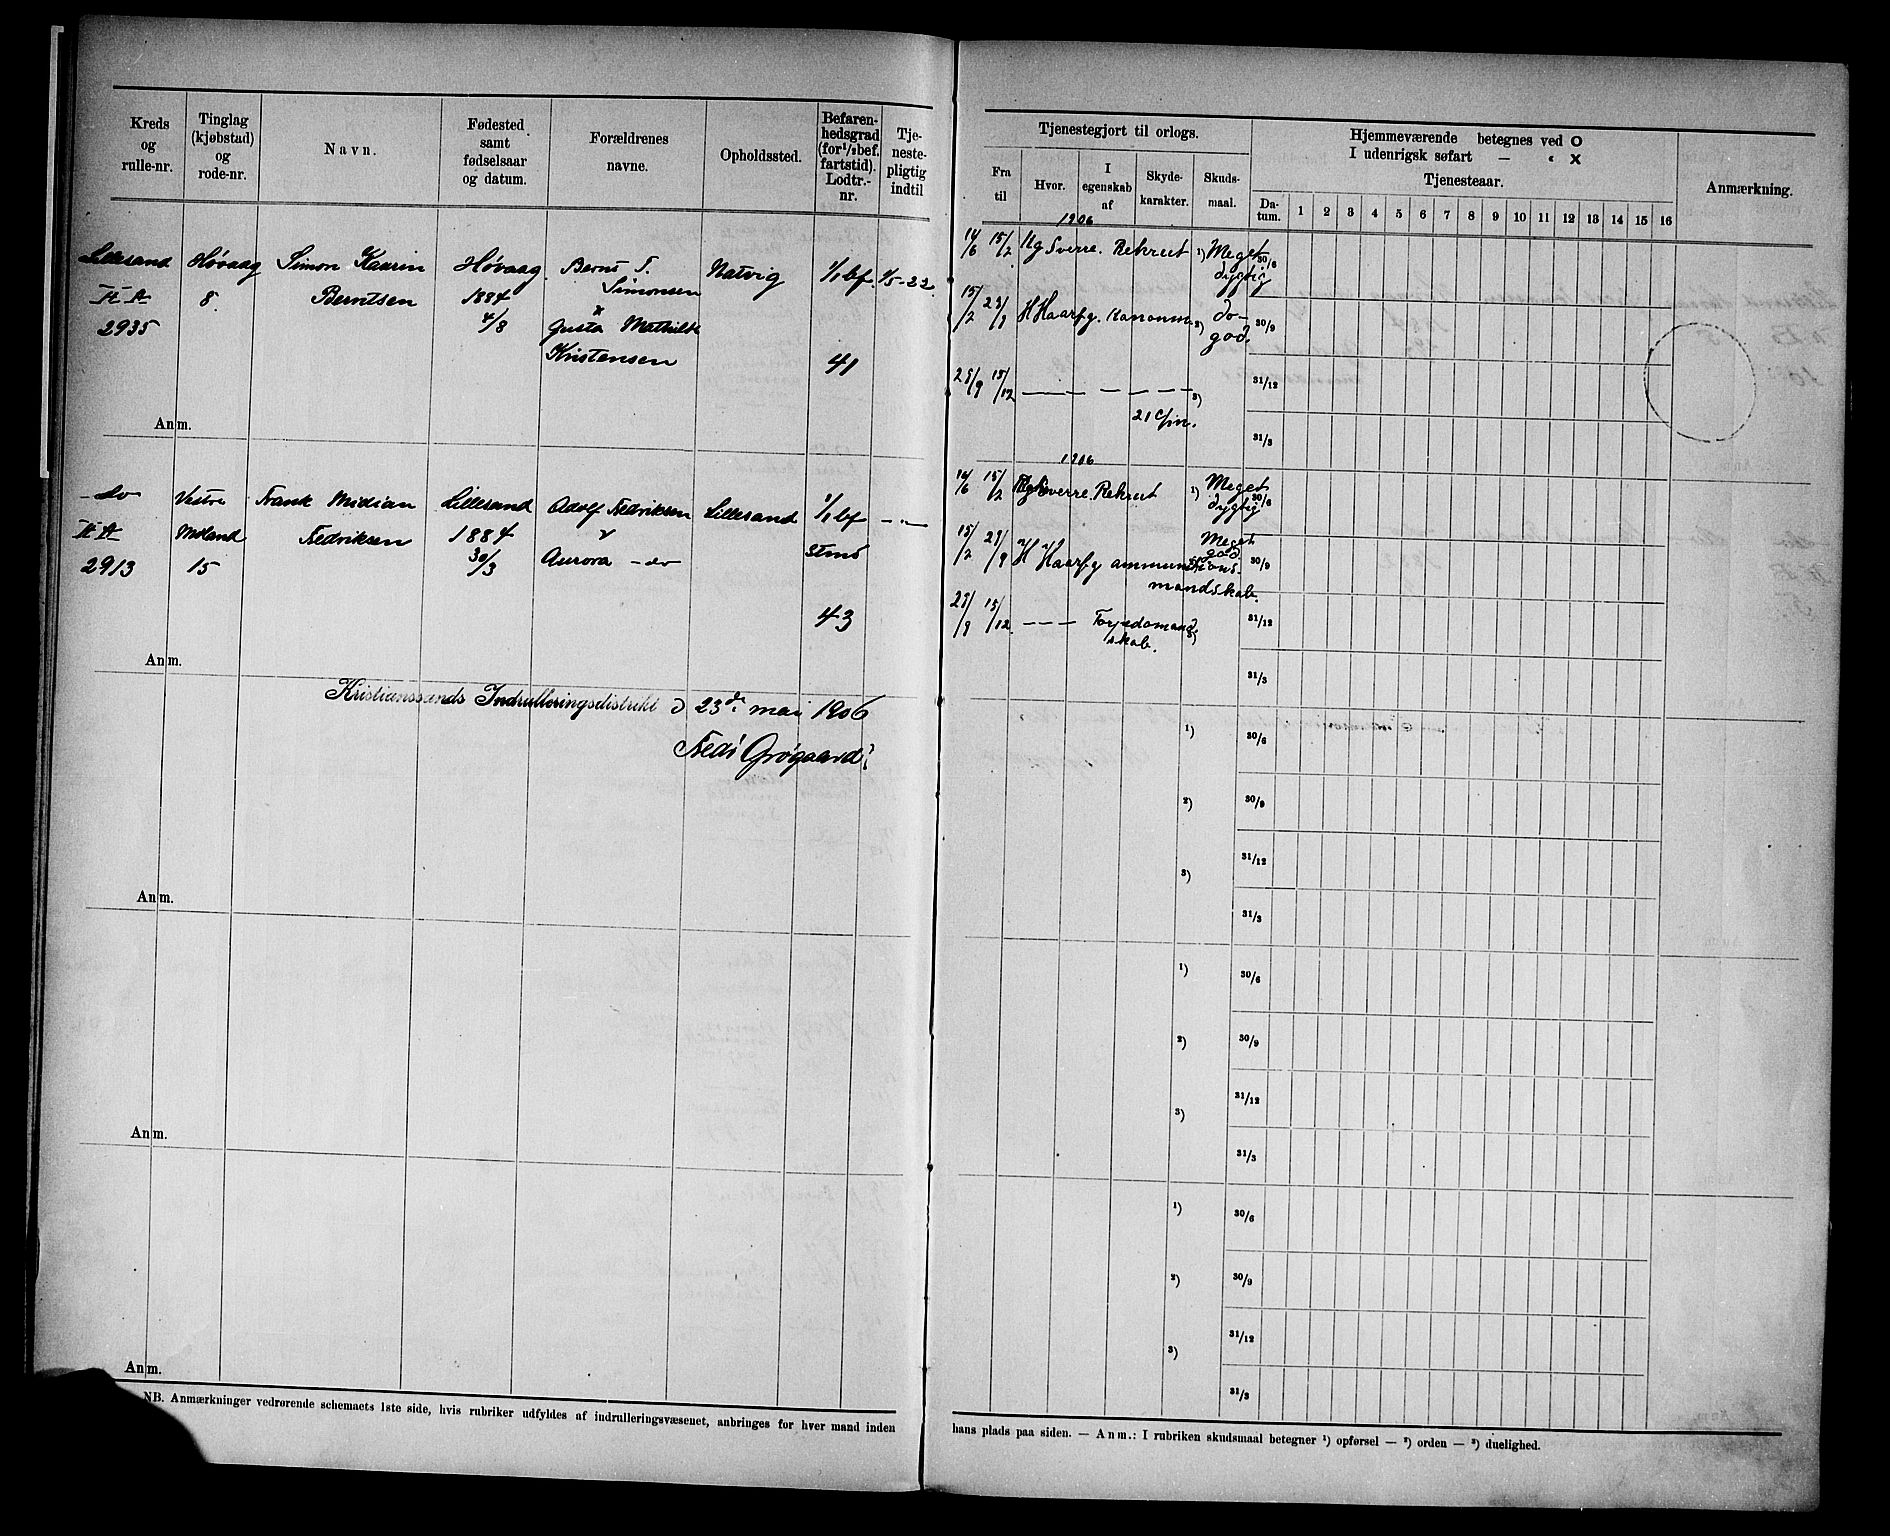 Kreds og rulle-nr.
Tinglag (kjøbstad) og rode-nr.
Navn.
Fødested samt fødselsaar og datum.
Forældrenes navne.
Opholdssted.
Befarenhedsgrad (for 1/1 bef. fartstid). Lodtr.-nr.
Tjenestepligtig indtil
Lillesand
II A
2935
Høvaag
8.
Simon Kaarin
Berntsen
Høvaag
1884
4/8
Bernt T.
Simonsen
Gusta Mathilde
Kristensen
Natvig
1/1 bf.
41
1/5-22.
Anm.
do
II A
2913
Vestre
Moland
15
Frank Midian
Fedriksen
Lillesand
1884
30/3
Adolf Fedriksen
Aurora - do
Lillesand
1/1 bf
stms
43
- " -
Anm.
Kristianssands Indrulleringsdistrikt d 23de mai 1906
Fedr Grøgaard
Anm.
Anm.
Anm.
NB. Anmærkninger vedrørende schemaets 1ste side, hvis rubriker udfyldes af indrulleringsvæsenet, anbringes for hver mand inden
Tjenestegjort til orlogs.
Fra til
Hvor.
I egenskab af
Skydekarakter.
Skudsmaal.
Hjemmeværende betegnes ved O
I udenrigsk søfart — " X
Tjenesteaar.
Datum. 1 2 3 4 5 6 7 8 9 10 11 12 13 14 15 16
Anmærkning.
1906
14/6 15/2 Kg Sverre. Rekrut 1) Meget dygtig 30/6
15/2 29/9 H Haarfg. Kanonm. 2) do- god. 30/9
29/9 15/12 — — — — 3) 31/12
21 c/m.
31/3
1906
14/6 15/2 Kg Sverre. Rekrut 1) Meget dygtig 30/6
15/2 29/9 H Haarfg ammunitionsmandskab. Meget god 30/9
29/9 15/12 — — — Torpedomandskab. 3) 31/12
31/3
1) 30/6
2) 30/9
3) 31/12
31/3
1) 30/6
2) 30/9
3) 31/12
31/3
1) 30/6
2) 30/9
3) 31/12
31/3
hans plads paa siden. — Anm.: I rubriken skudsmaal betegner 1) opførsel — 2) orden — 3) duelighed.